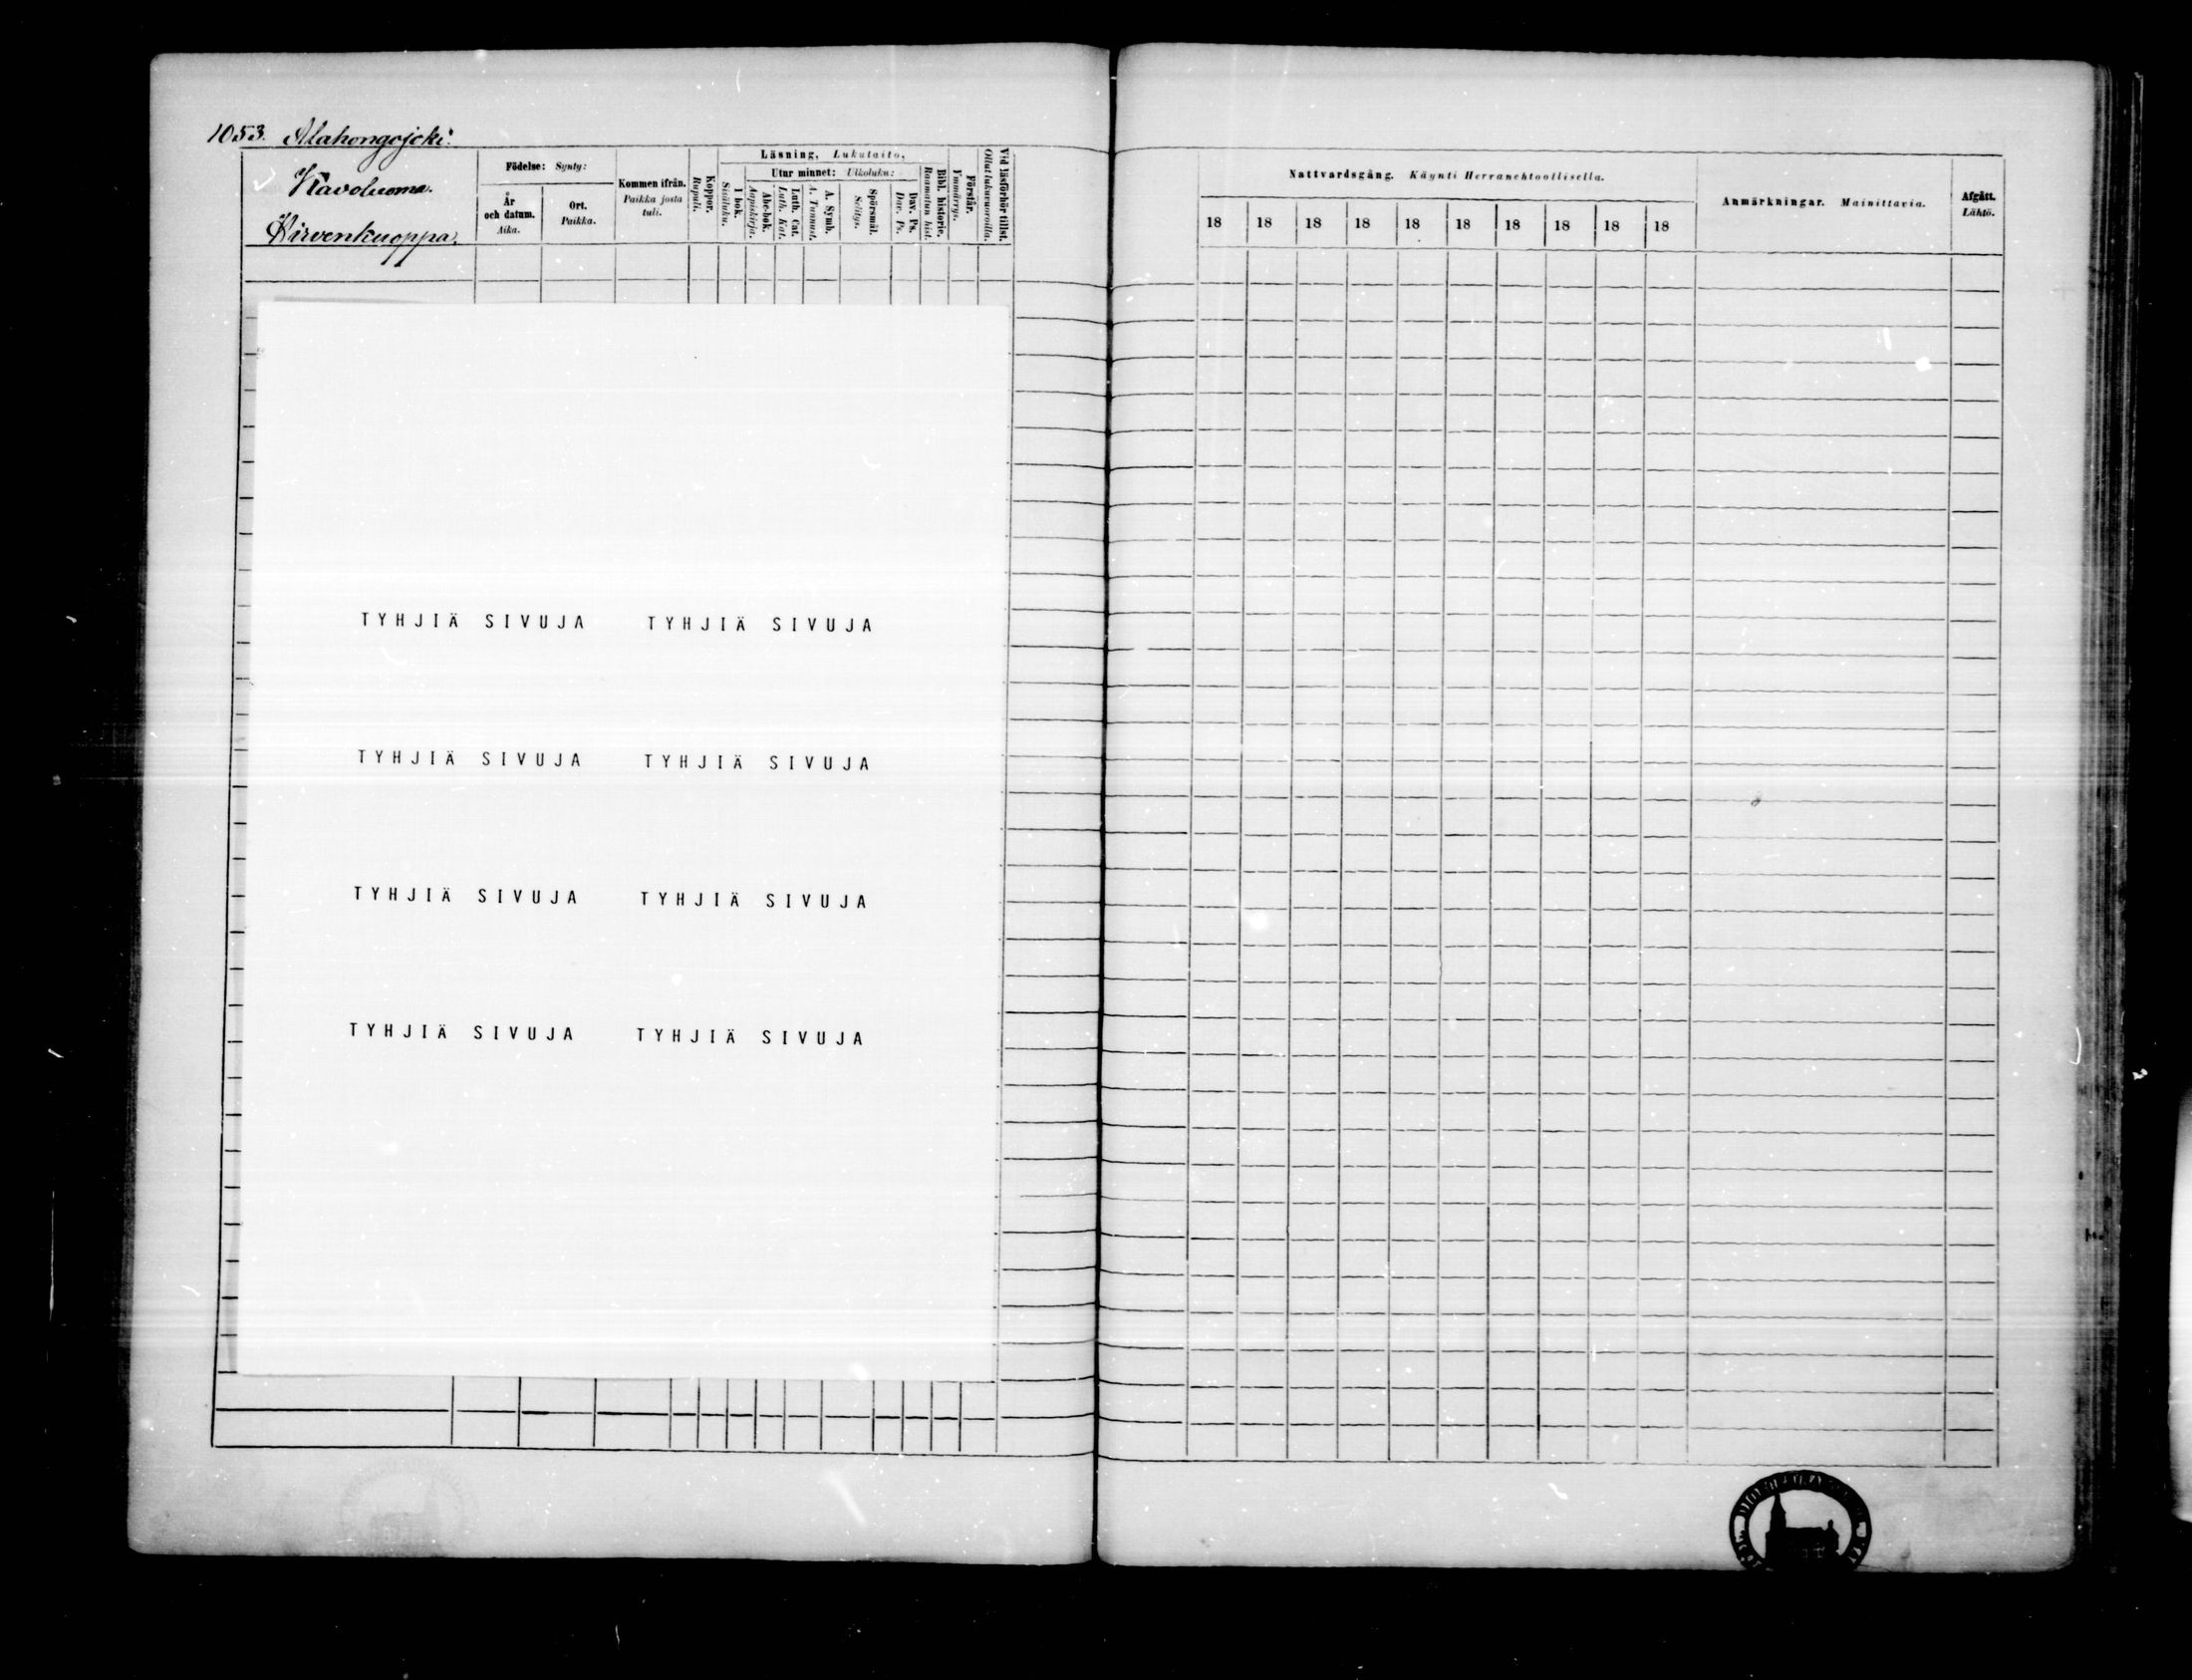 1053. Alahongojoki.
Kavoluoma.
Hirvenkuoppa.
Födelse: Synty:
År och datum. Aika.
Ort. Paikka.
Kommen ifrån. Paikka josta tuli.
Koppor. Rupuli.
Läsning, Lukutaito,
I bok. Sisäluku.
Utur minnet: Ulkoluku:
Abc-bok. Aapiskirja.
Luth. Cat. Luth. Kat.
A. Symb. A. Tunnust.
Spörsmål. Selitys.
Dav. Ps. Dav. Ps.
Bibl. historie. Raamatun hist.
Förstår. Ymmärrys.
Vid läsförhör tillst. Ollut lukuvuoroilla.
Nattvardsgång. Käynti Herranehtoollisella.
18 18 18 18 18 18 18 18 18 18
Anmärkningar. Mainittavia.
Afgått. Lähtö.
TYHJIÄ SIVUJA TYHJIÄ SIVUJA
TYHJIÄ SIVUJA TYHJIÄ SIVUJA
TYHJIÄ SIVUJA TYHJIÄ SIVUJA
TYHJIÄ SIVUJA TYHJIÄ SIVUJA